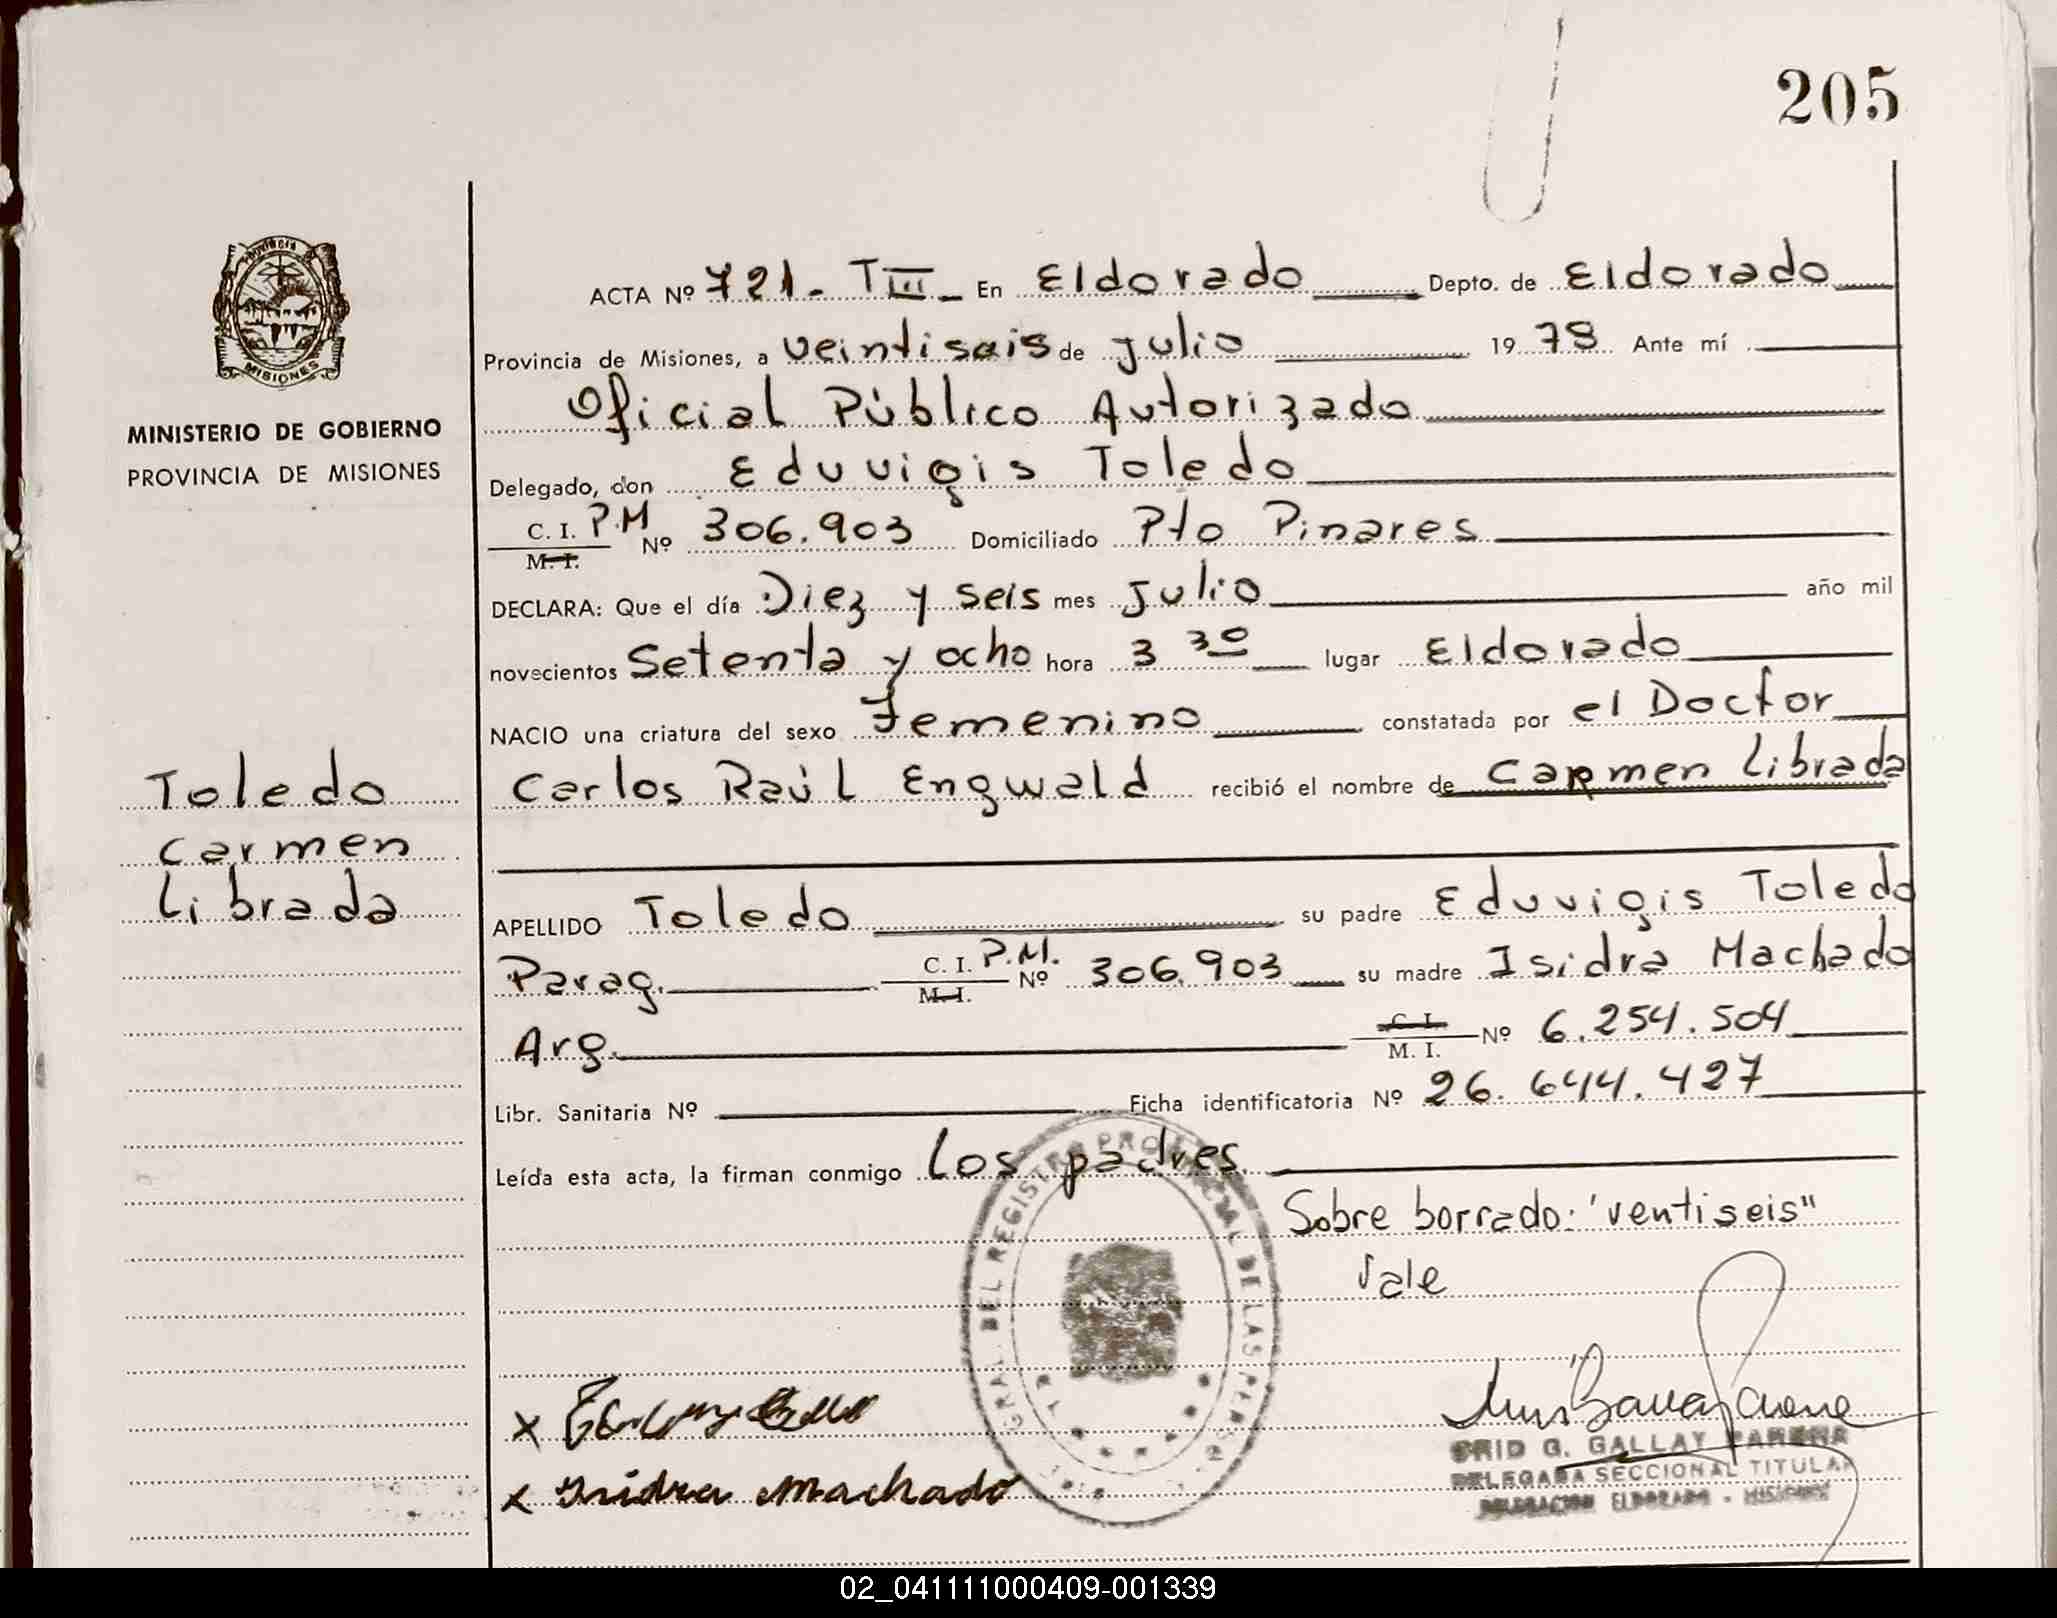 205
Provincia
MISIONES
MINISTERIO DE GOBIERNO
PROVINCIA DE MISIONES
Toledo
Carmen
Librada
ACTA Nº 721. TIII En Eldorado Depto. de Eldorado
Provincia de Misiones, a veintiseis de Julio 1978 Ante mí
Oficial Público Autorizado
Delegado, don Eduvigis Toledo
C. I. P.M Nº 306.903 Domiciliado Pto Pinares
M. I.
DECLARA: Que el día Diez y seis mes Julio año mil
novecientos Setenta y ocho hora 3 30 lugar Eldorado
NACIO una criatura del sexo Femenino constatada por el Doctor
Carlos Raúl Engwald recibió el nombre de Carmen Librada
APELLIDO Toledo su padre Eduvigis Toledo
Parag. C. I. P.M. Nº 306.903 su madre Isidra Machado
M. I.
Arg. C. I. Nº 6.254.504
M. I.
Libr. Sanitaria Nº Ficha identificatoria Nº 26.644.427
Leída esta acta, la firman conmigo los padres
Sobre borrado: "ventiseis"
Vale
GRAL. DEL REGISTRO PROVINCIAL DE LAS
x
x Isidra Machado
G. GALLAY PARENA
DELEGADA SECCIONAL TITULAR
DELEGACION ELDORADO - MISIONES
02_041111000409-001339